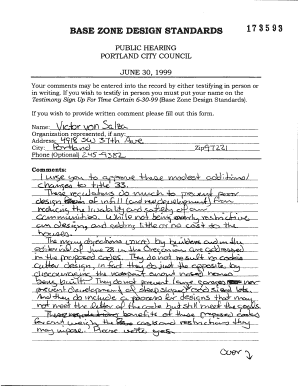 BASE ZONE DESIGN STANDARDS
173593
PUBLIC HEARING
PORTLAND CITY COUNCIL
JUNE 30, 1999
Your comments may be entered into the record by either testifying in person or
in writing. If you wish to testify in person you must put your name on the
Testimony Sign Up For Time Certain 6-30-99 (Base Zone Design Standards).
If you wish to provide written comment please fill out this form.
Name: Victor von Salza
Organization represented, if any:
Address: 4918 SW 37th Ave
City: Portland Zip 97221
Phone (Optional) 245-9382
Comments:
I urge you to approve these modest additional
changes to title 33.
These regulations do much to prevent poor
design of infill (and redevelopment) from
reducing the livability and safety of our
communities. While not being overly restrictive
on designs, and adding little or no cost to the
houses.
The many objections by builders and in the
editorial of June 28 in the Oregonian are addressed
in the proposed codes. They do not result in cookie
cutter design, in fact they do just the opposite, by
discouraging the
being built. They do not prevent large garages nor
prevent development of steep sloped and sized lots.
And they do include a process for designs that may
not meet the letter of the code but still meet the goals.
benefits of these proposed codes
far out weigh the costs and restrictions they
may impose. Please vote yes.
over